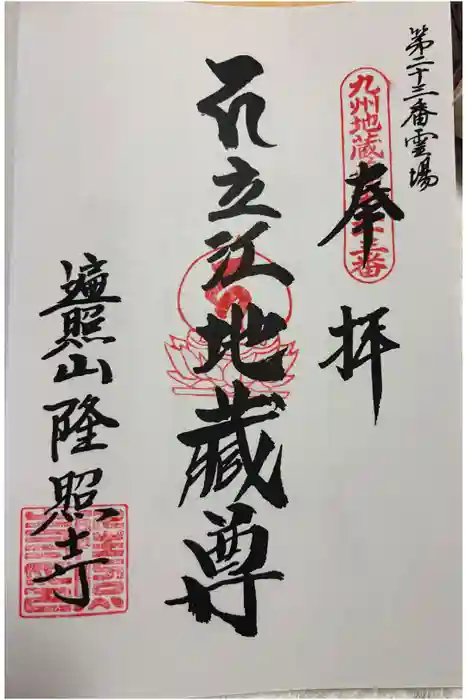 第二十三番霊場
九州地蔵
三番
奉拝
立江地蔵尊
遍照山隆照寺